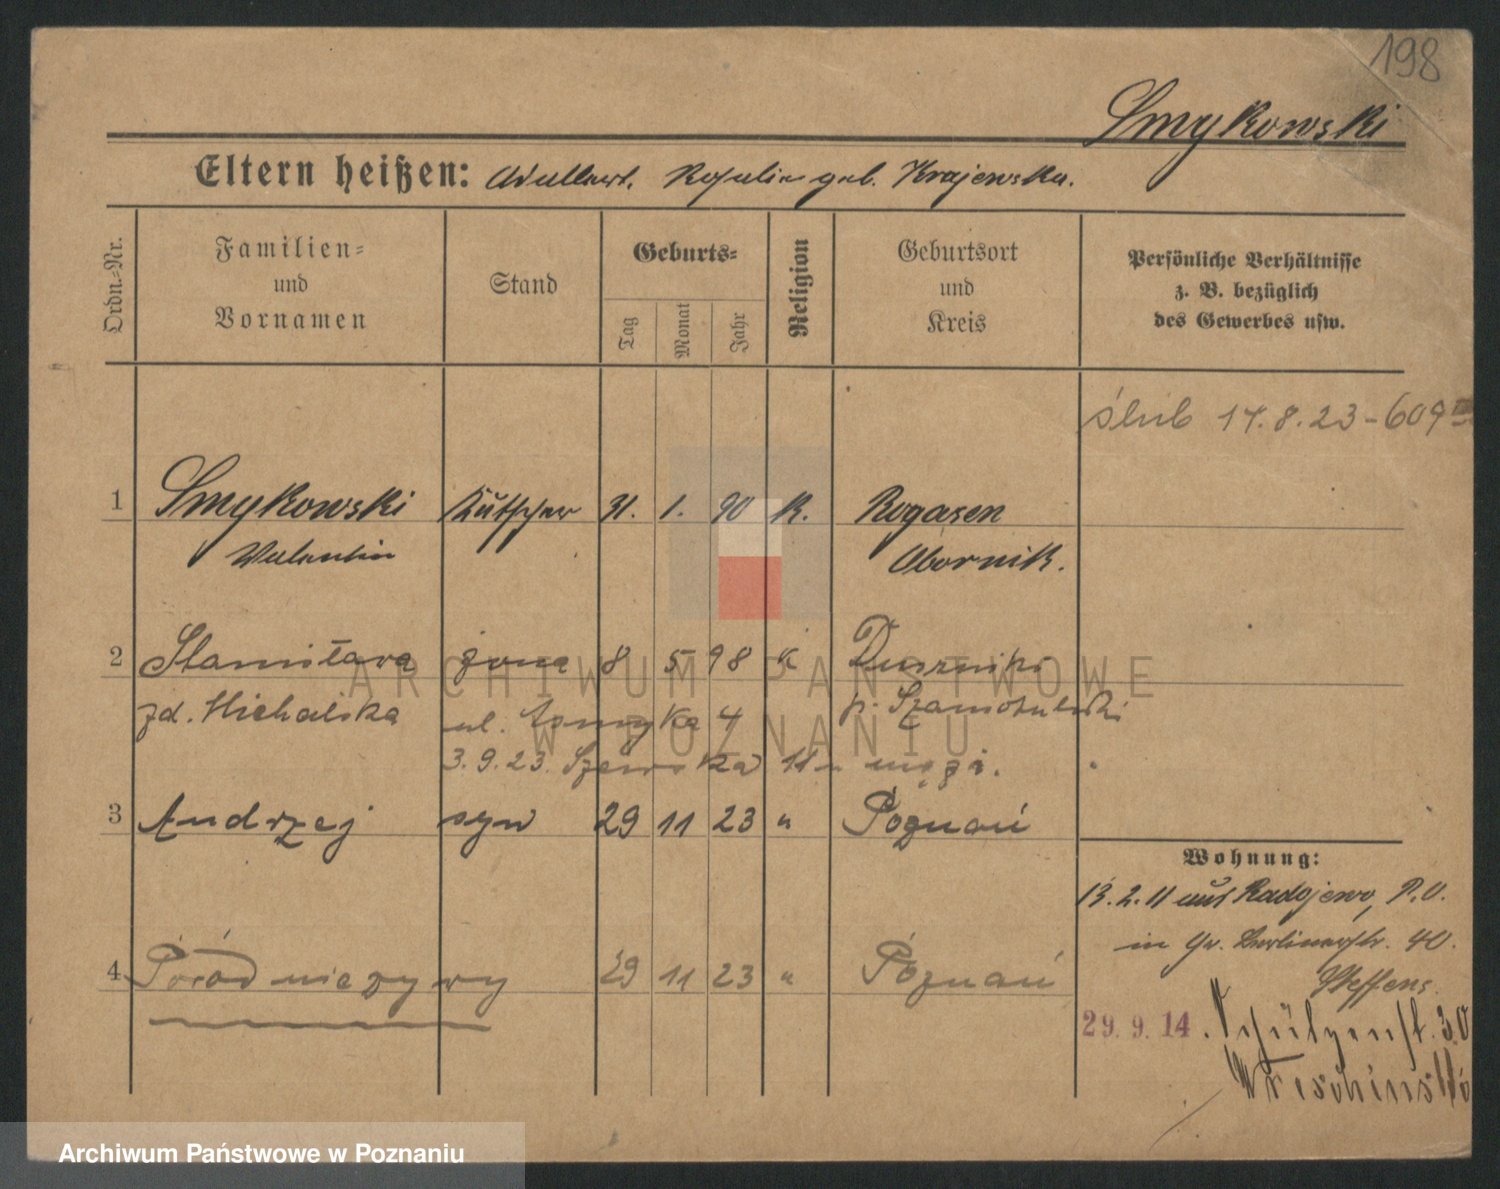 198
Smykowski
Eltern heißen: Adalbert. Rosalie geb. Krajewska.
Ordn.-Nr.
Familien- und Vornamen
Stand
Geburts-
Tag
Monat
Jahr
Religion
Geburtsort und Kreis
Persönliche Verhältnisse z. B. bezüglich des Gewerbes usw.
ślub 14.8.23 - 609
1 Smykowski Kutscher 31. 1. 90 K. Rogasen
Valentin Obornik.
2 Stanisława żona 8 5 98 K Duszniki
zd. Michalska ul. 4 p. Szamotulski
3.9.23. Szewska 11 u męża.
3 Andrzej syn 29 11 23 " Poznań
Wohnung:
13.2.11 aus Radojewo, P.O.
in Gr. Berlinerstr. 40.
Steffens.
4 Poród nieżywy 29 11 23 " Poznań
29.9.14. Schützenst. 30
ARCHIWUM PAŃSTWOWE
W POZNANIU
Archiwum Państwowe w Poznaniu